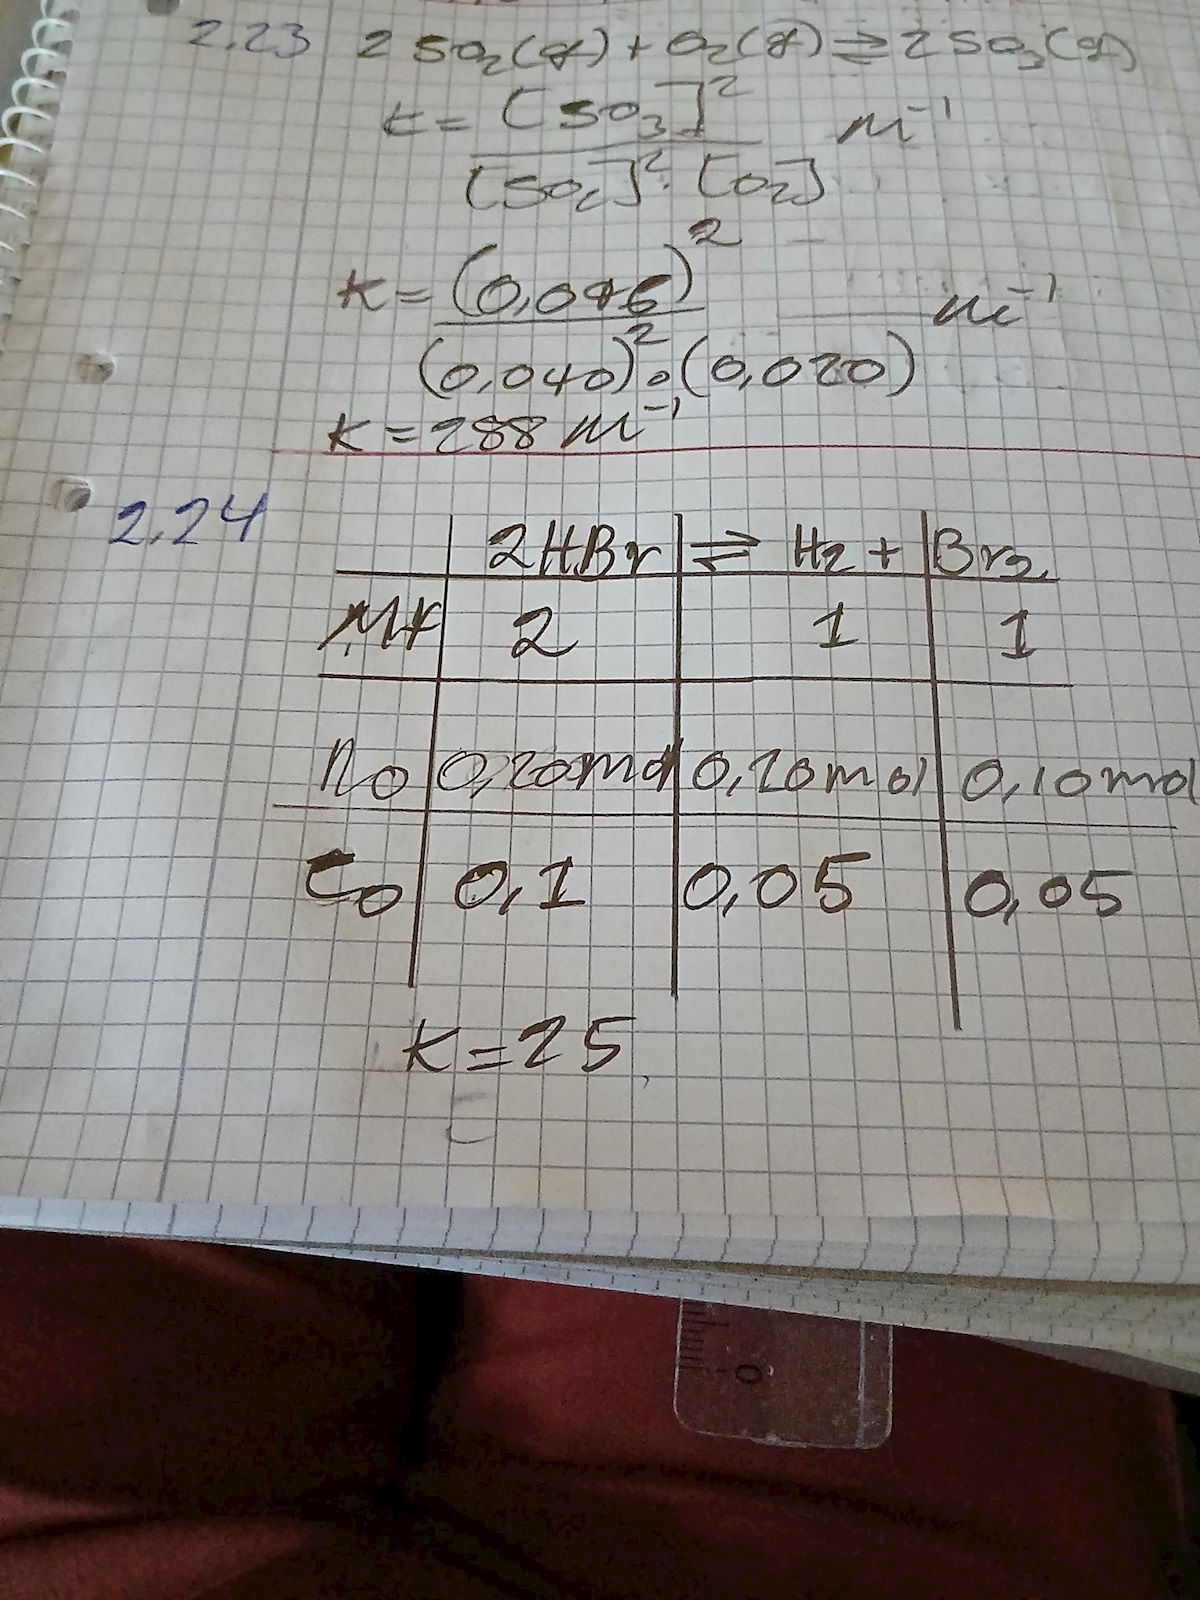 2.23 2SO₂(g) + O₂(g) ⇌ 2SO₃(g)
K = [SO₃]² M⁻¹
[SO₂]² · [O₂]
K = (0,096)² M⁻¹
(0,040)² · (0,020)
K = 288 M⁻¹
2.24
2HBr ⇌ H₂ + Br₂
MF 2 1 1
n₀ 0,20mol 0,20mol 0,10mol
C₀ 0,1 0,05 0,05
K = 25
0